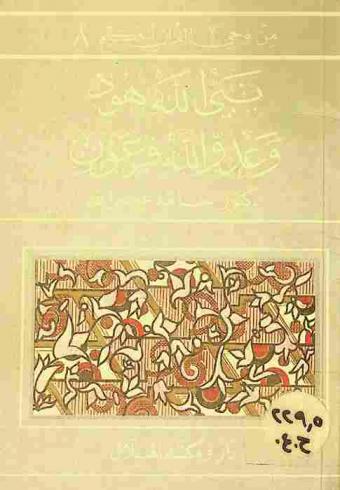 من وحي القرآن الكريم ٨
نبي الله هود
وعدو الله فرعون
دكتور
دار ومكتبة الهلال
٢٢٩,٥
ع.ح